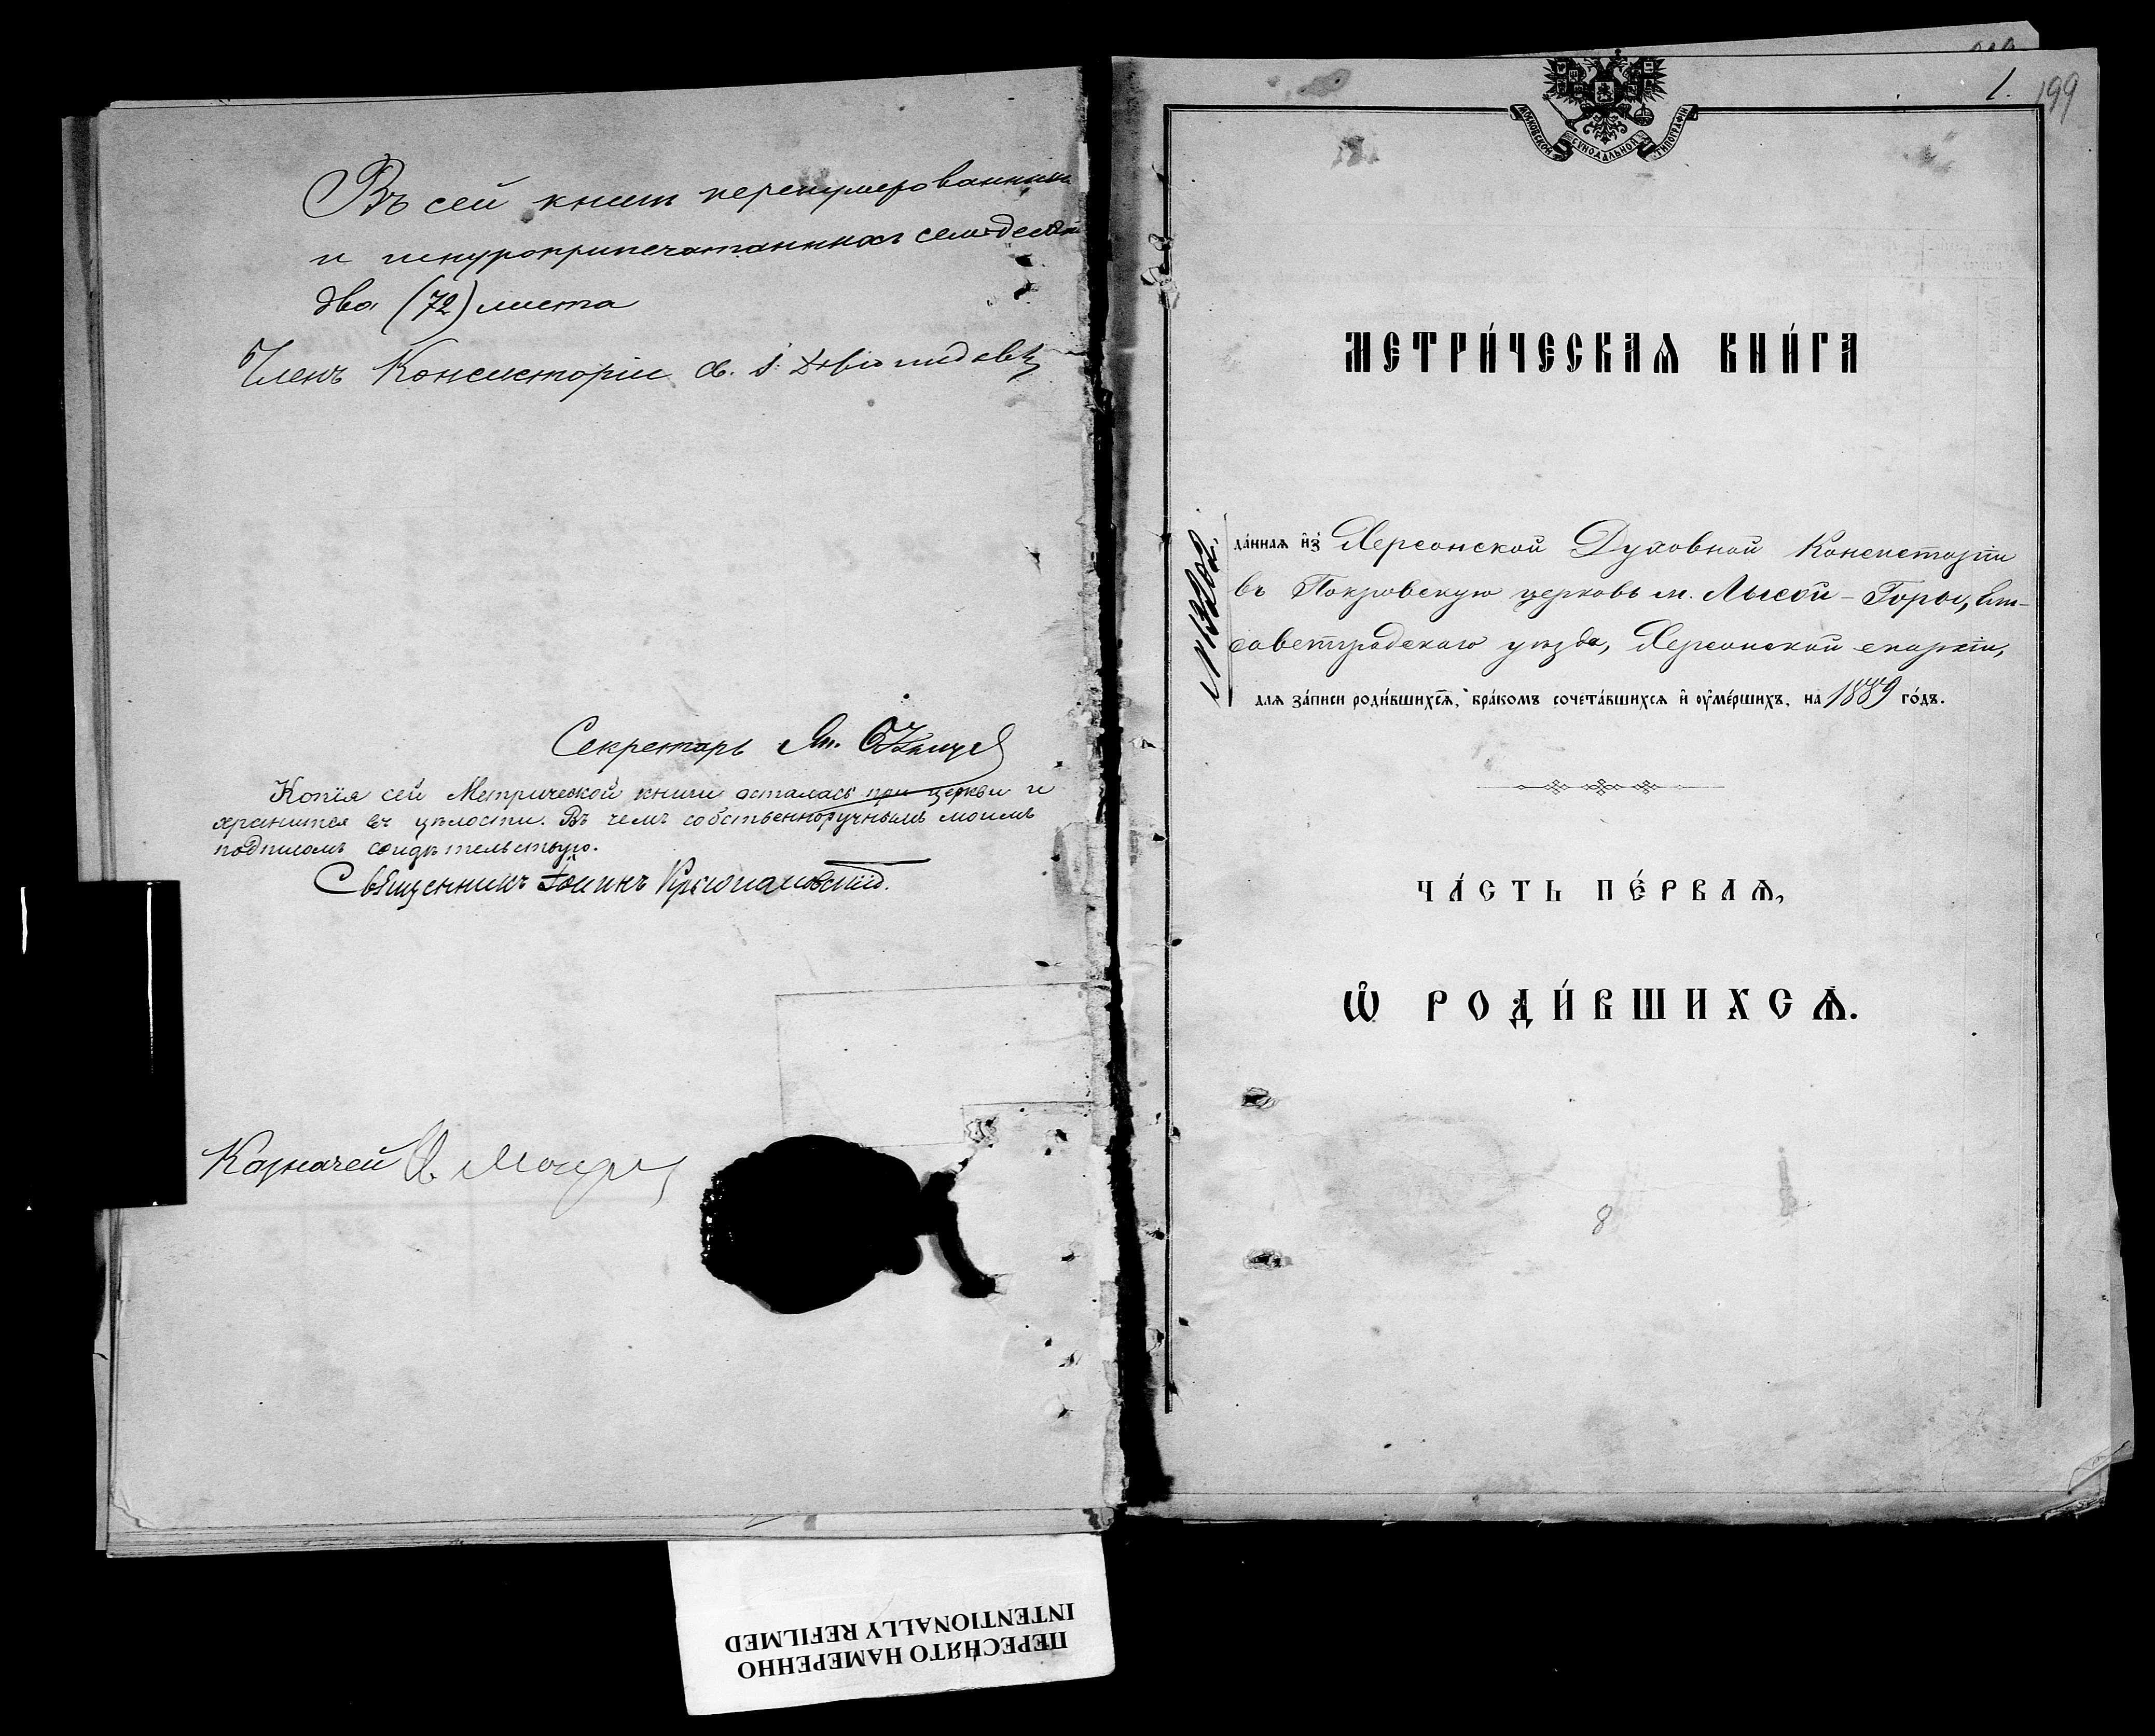 Въ сей книги перенумерованныхъ
и шнуроприпечатанныхъ семьдесятъ
два (72) листа
Членъ Консисторіи св. І.
Секретарь
Копія сей Метрической книги осталась при церкви и
хранится въ цѣлости. Въ чемъ собственноручнымъ моимъ
подписомъ свидѣтельствую.
Священникъ Іоаннъ
Казначей
ПЕРЕСНЯТО НАМЕРЕННО
INTENTIONALLY REFILMED
1. 199
МОСКОВСКОЙ СѴНОДАЛЬНОЙ ТИПОГРАФІИ
МЕТРИ́ЧЕСКАѦ КНИ́ГА
№ 13202.
да́ннаѧ и҆з̾ Херсонской Духовной Консисторіи
въ Покровскую церковь м. Лысой-Горы, Ели-
саветградскаго уѣзда, Херсонской епархіи,
для за́писи роди́вшихсѧ, бра́комъ сочета́вшихсѧ и҆ ᲂу҆ме́ршихъ, на 1889 го́дъ.
ЧА́СТЬ ПЕ́РВАѦ,
Ѡ҆ РОДИ́ВШИХСѦ.
8